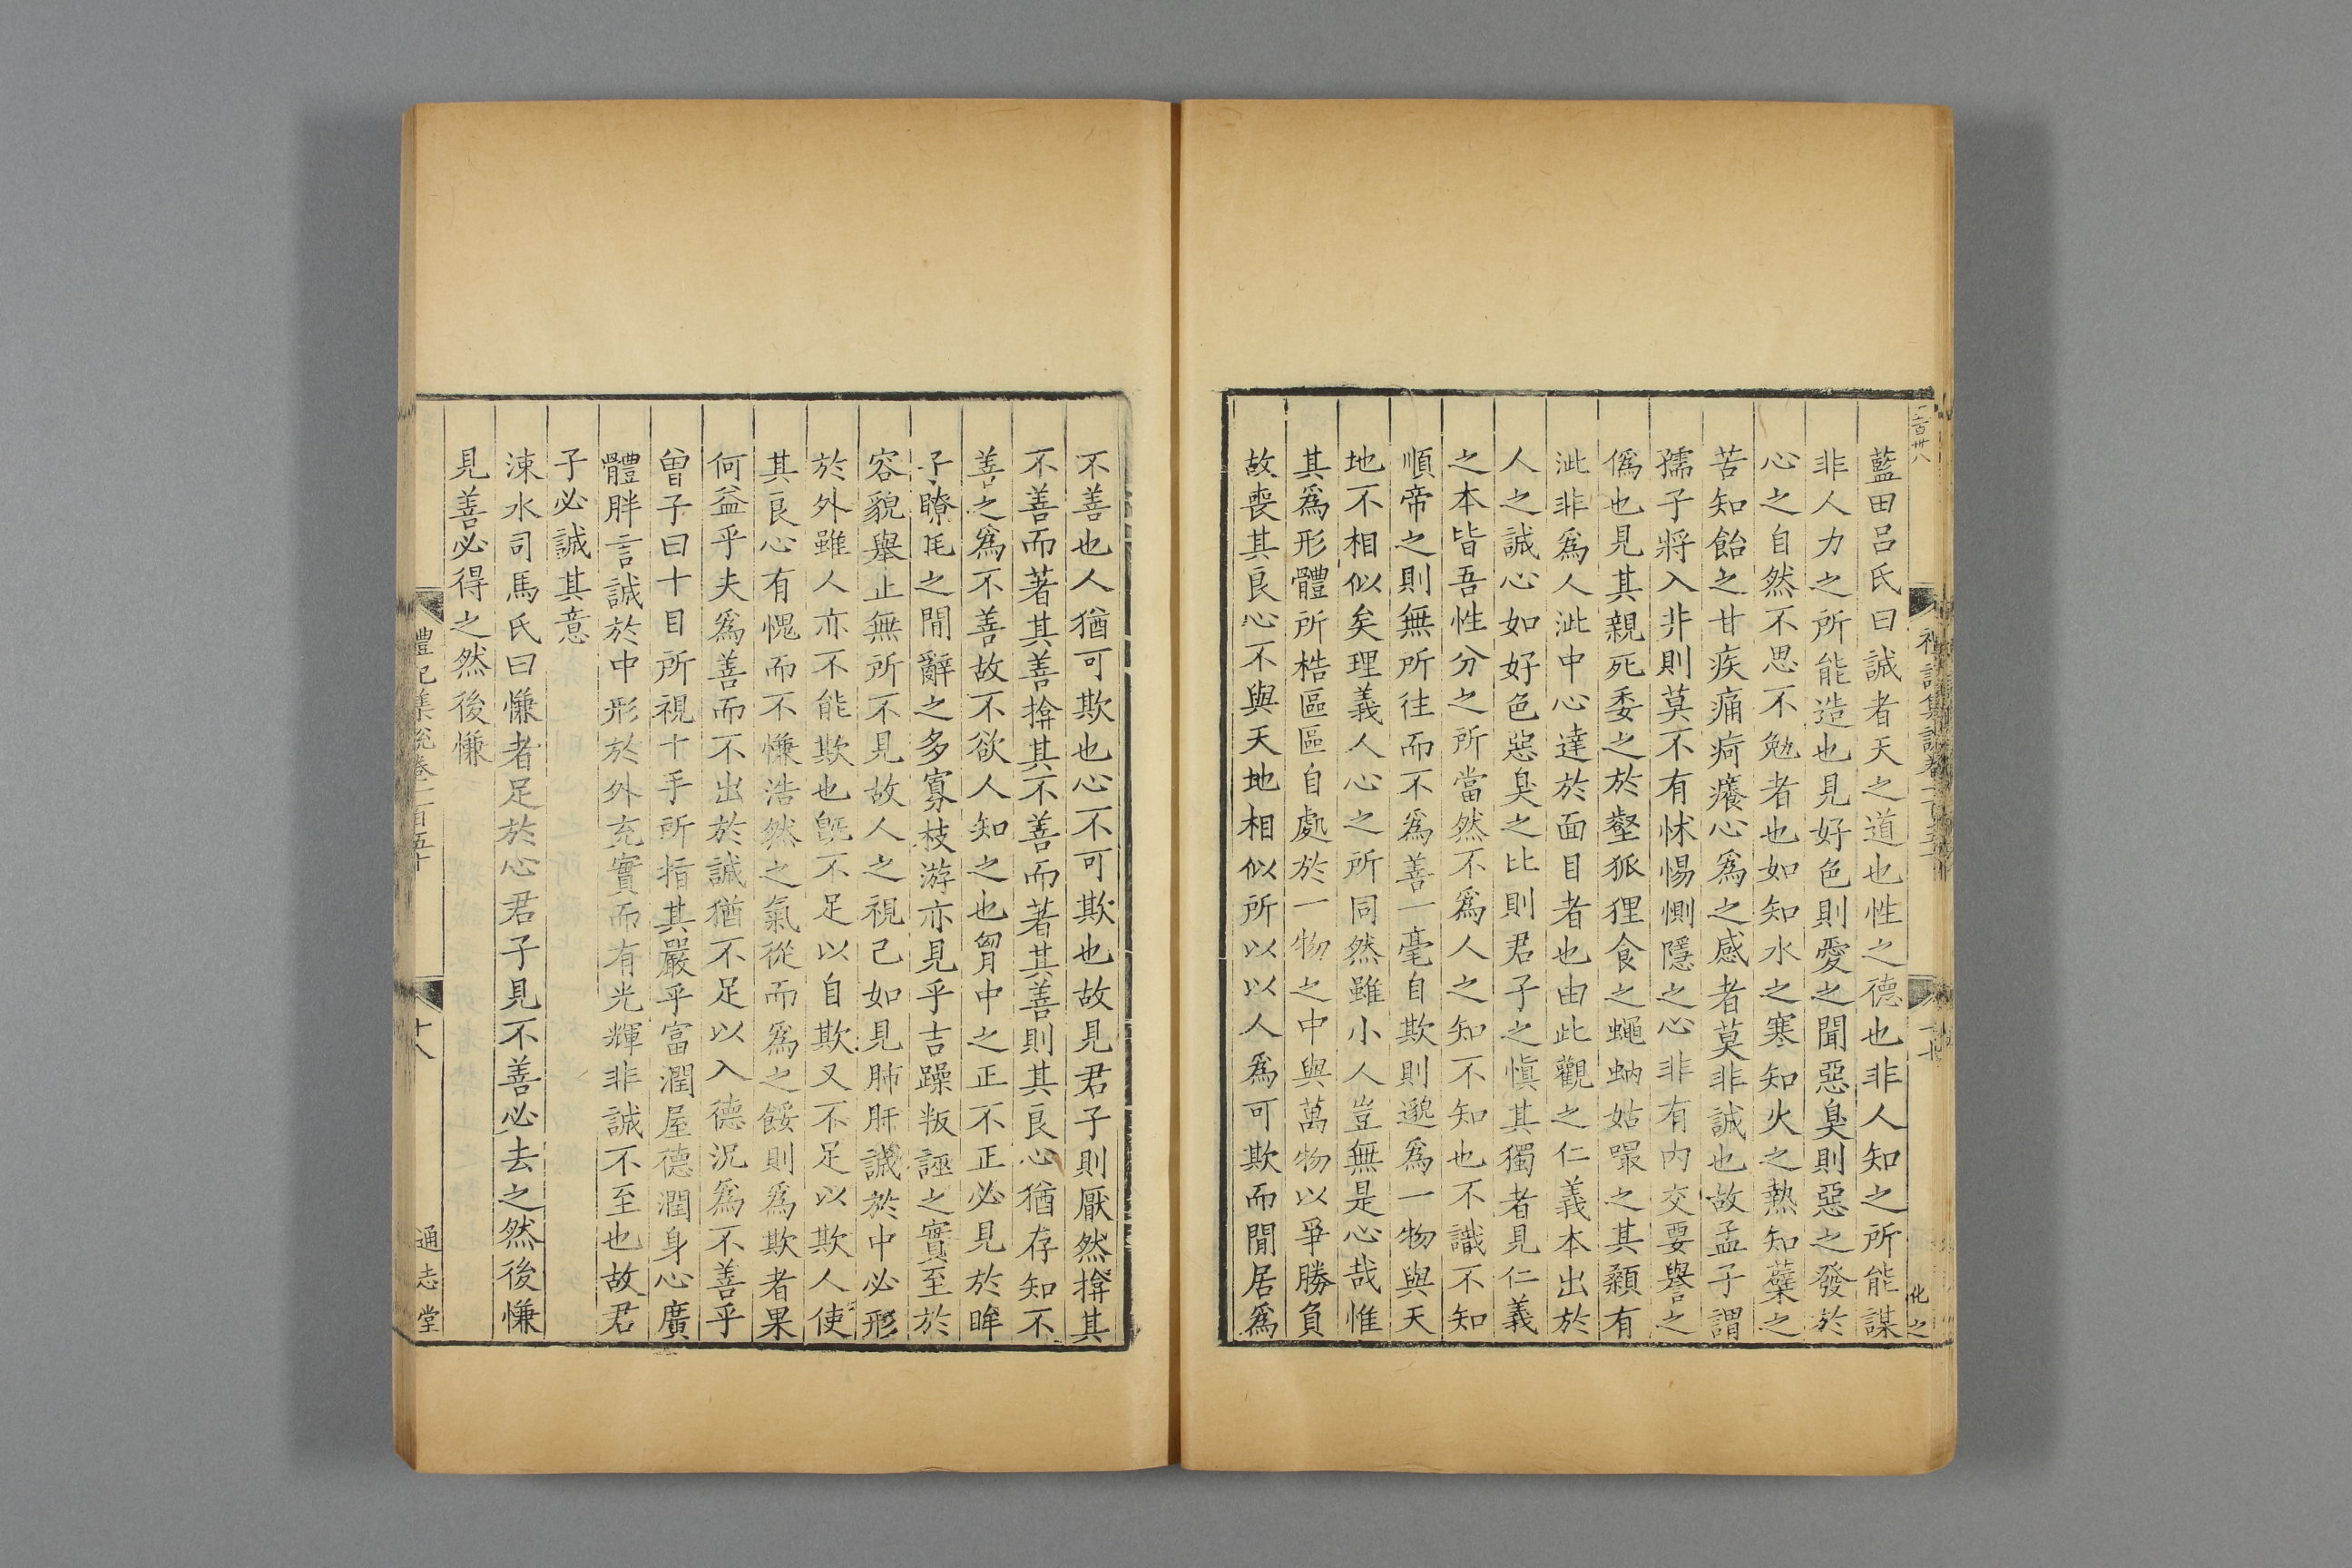 藍田呂氏曰誠者天之道也性之德也非人知之所能謀
非人力之所能造也見好色則愛之聞惡臭則惡之發於
心之自然不思不勉者也如知水之寒知火之熱知蘗之
苦知飴之甘疾痛疴癢心爲之感者莫非誠也故孟子謂
孺子將入井則莫不有怵惕惻隱之心非有内交要譽之
僞也見其親死委之於壑狐狸食之蠅蚋姑嘬之其顙有
泚非爲人泚中心達於面目者也由此觀之仁義本出於
人之誠心如好色惡臭之比則君子之愼其獨者見仁義
之本皆吾性分之所當然不爲人之知不知也不識不知
順帝之則無所往而不爲善一毫自欺則邈爲一物與天
地不相似矣理義人心之所同然雖小人豈無是心哉惟
其爲形體所梏區區自處於一物之中與萬物以爭勝負
故喪其良心不與天地相似所以以人爲可欺而閒居爲
不善也人猶可欺也心不可欺也故見君子則厭然揜其
不善而著其善揜其不善而著其善則其良心猶存知不
善之爲不善故不欲人知之也胷中之正不正必見於眸
子瞭眊之間辭之多寡枝游亦見乎吉躁叛誣之實至於
容貌舉止無所不見故人之視己如見肺肝誠於中必形
於外雖人亦不能欺也旣不足以自欺又不足以欺人使
其良心有愧而不慊浩然之氣從而爲之餒則爲欺者果
何益乎夫爲善而不出於誠猶不足以入德況爲不善乎
曾子曰十目所視十手所指其嚴乎富潤屋德潤身心廣
體胖言誠於中形於外充實而有光輝非誠不至也故君
子必誠其意
涑水司馬氏曰慊者足於心君子見不善必去之然後慊
見善必得之然後慊
禮記集說卷一百五十
十八
通志堂